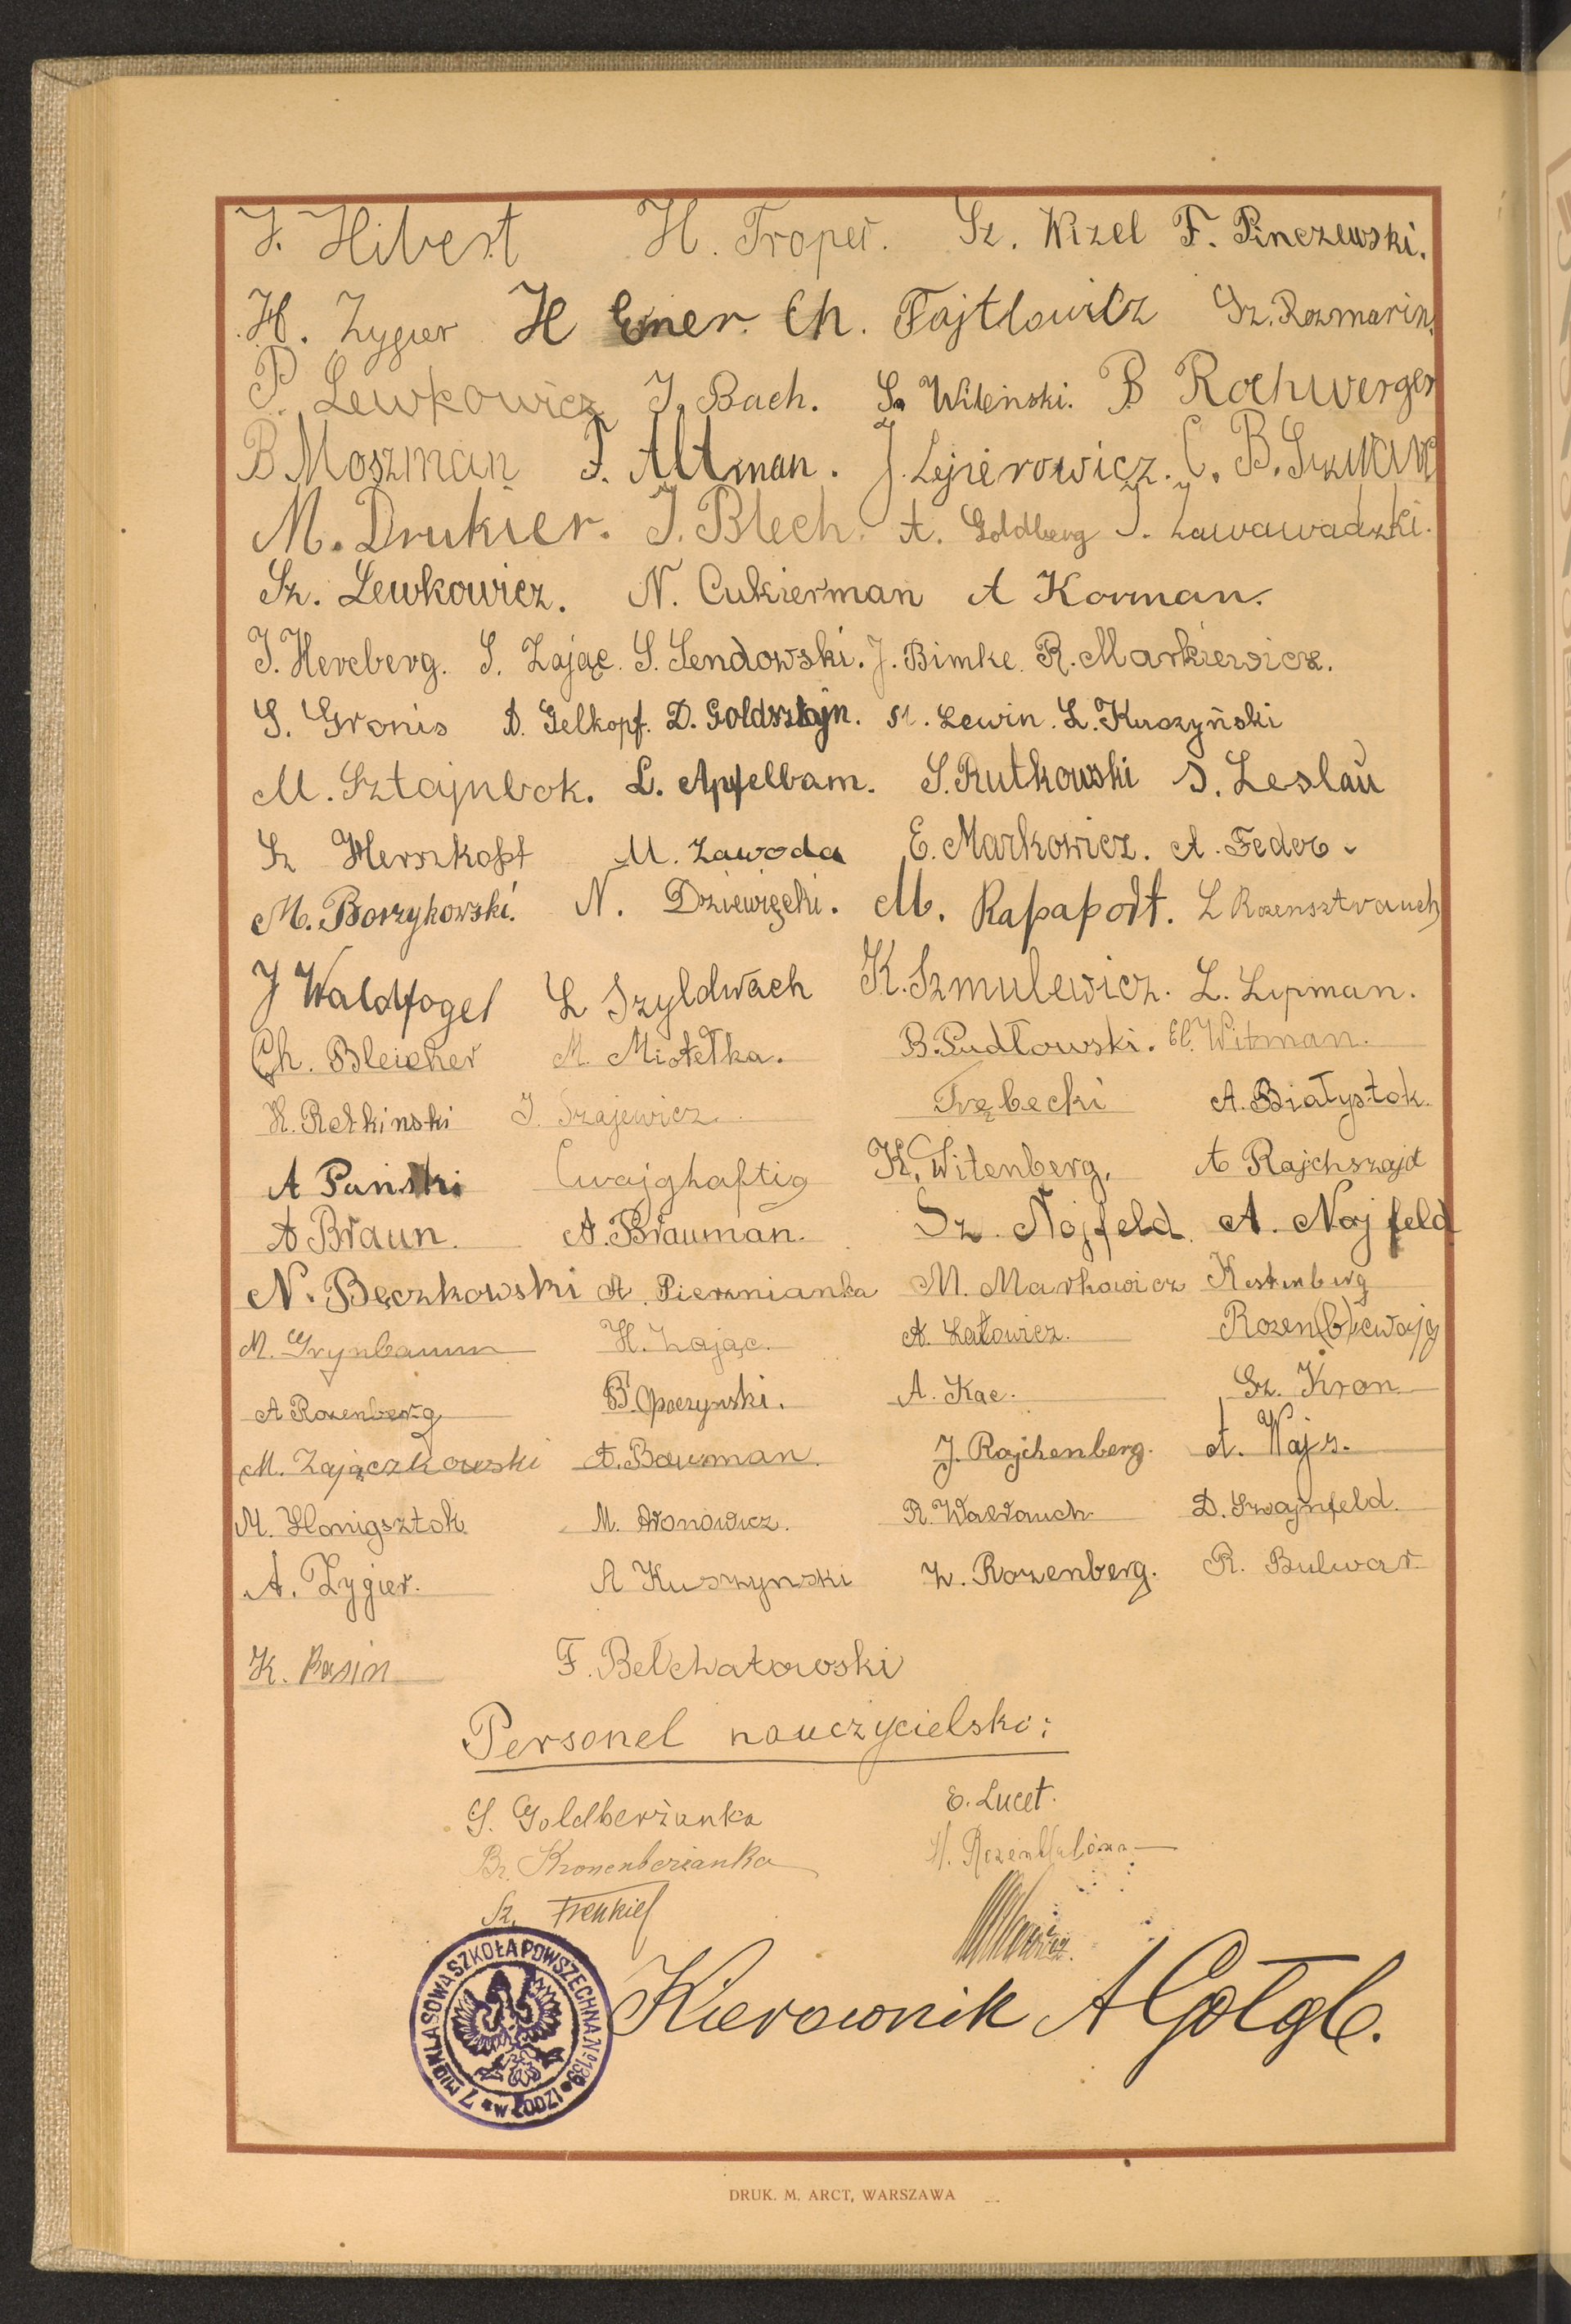 J. Hibert H. Troper. Sz. Wizel F. Pinczewski.
H. Zygier H Ener. Ch. Fajtlowicz Sz. Rozmarin.
P. Lewkowicz J. Bach. S. Wileński. B Rochwerger
B Moszman F. Altman. J. Lejzerowicz. C. B.
M. Drukier. J. Blech. A. Goldberg J. Zawawadzki.
Sz. Lewkowicz. N. Cukierman A Korman.
J. Hercberg. S. Zając. S. Sendowski. J. Bimke. R. Markiewicz.
S. Gronis D. Gelkopf. D. Goldsztajn. Sz. Lewin. L. Kuczyński
M. Sztajnbok. L. Apfelbam. S. Rutkowski S. Leslau
Sz Herszkopf M. Zawoda E. Markowicz. A. Feder.
M. Borzykowski. N. Dziewięcki. M. Rapaport. L Rozensztrauch
J Waldfogel L Szyldwach K. Szmulewicz. L. Lipman.
Ch. Bleicher M. Miotełka. B. Pudłowski. El. Witman.
H. Retkinski J. Szajewicz. Trębecki A. Białystok.
A Pański Cwajghaftig K. Witenberg. A Rajchszajd
A Braun. A. Brauman. Sz. Nojfeld. A. Najfeld
N. Bęczkowski A. Piernianka M. Markowicz Kestenberg
M. Grynbaum H. Zając. A. Łatowicz. Rozen(b)cwajg
A Rozenberg B. Opoczynski. A. Kac. Sz. Kron
M. Zajączkowski A. Bauman. J. Rajchenberg. A. Wajs.
M. Honigsztok M. Aronowicz. R. Walrauch D. Szwajnfeld.
A. Zygier. A Kuszynski Z. Rozenberg. R. Bulwar
K. Basin F. Bełchatowski
Personel nauczycielski:
S. Goldberżanka E. Lucet.
Br. Kronenberżanka H. Rozenblatówna
Sz. Frenkiel
Kierownik A Gołąb.
7 MIOKLASOWA SZKOŁA POWSZECHNA No 139 w ŁODZI
DRUK. M. ARCT, WARSZAWA